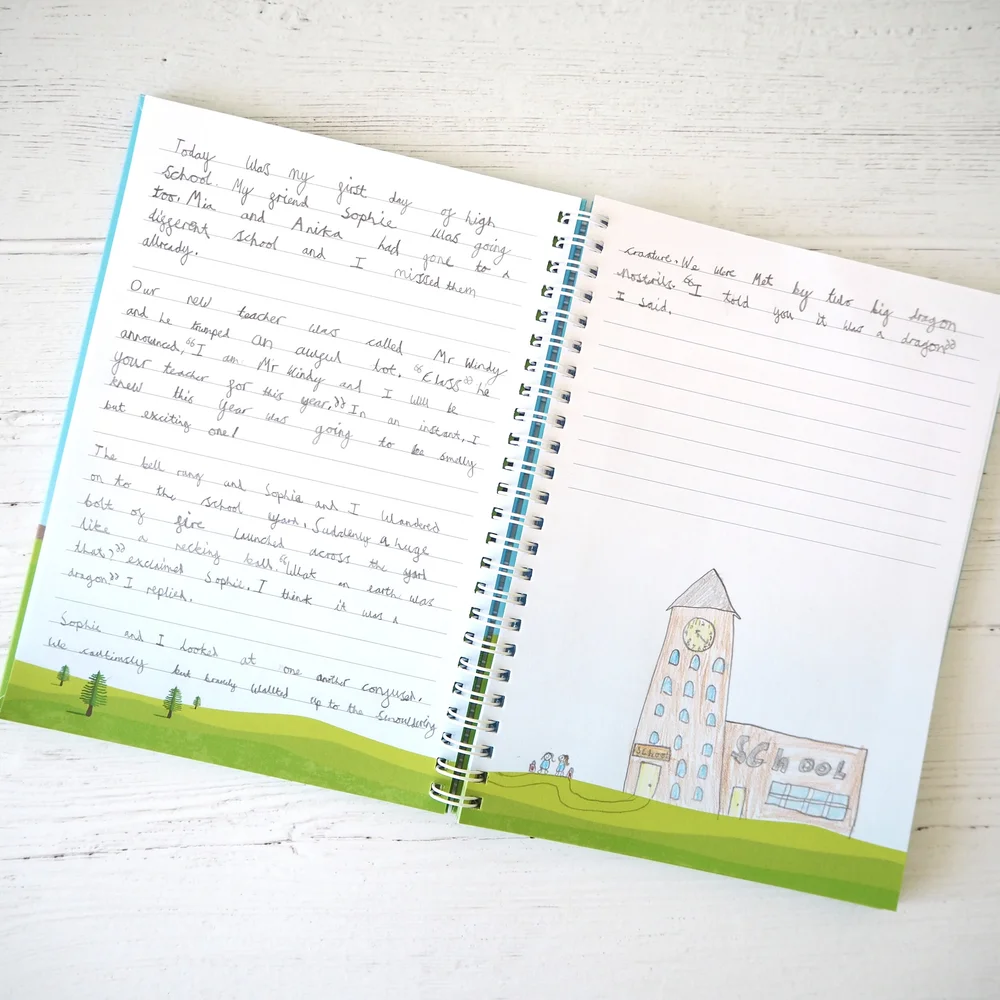 Today was my first day of high
school. My friend Sophie was going
too. Mia and Anika had gone to a
different school and I missed them
allready.
Our new teacher was called Mr Windy
and he trumped an awful lot. "CLASS" he
announced, "I am Mr Windy and I will be
your teacher for this year." In an instant, I
knew this year was going to be smelly
but exciting one!
The bell rang and Sophie and I wandered
on to the school yard. Suddenly a huge
bolt of fire launched across the yard
like a recking ball. "What on earth was
that?" exclaimed Sophie. I think it was a
dragon" I replied.
Sophie and I looked at one another confused.
We cautiously but bravely wallted up to the smouldering
crature. We were met by two big dragon
nostrils. "I told you it was a dragon"
I said.
SCHOOL
SCHOOL